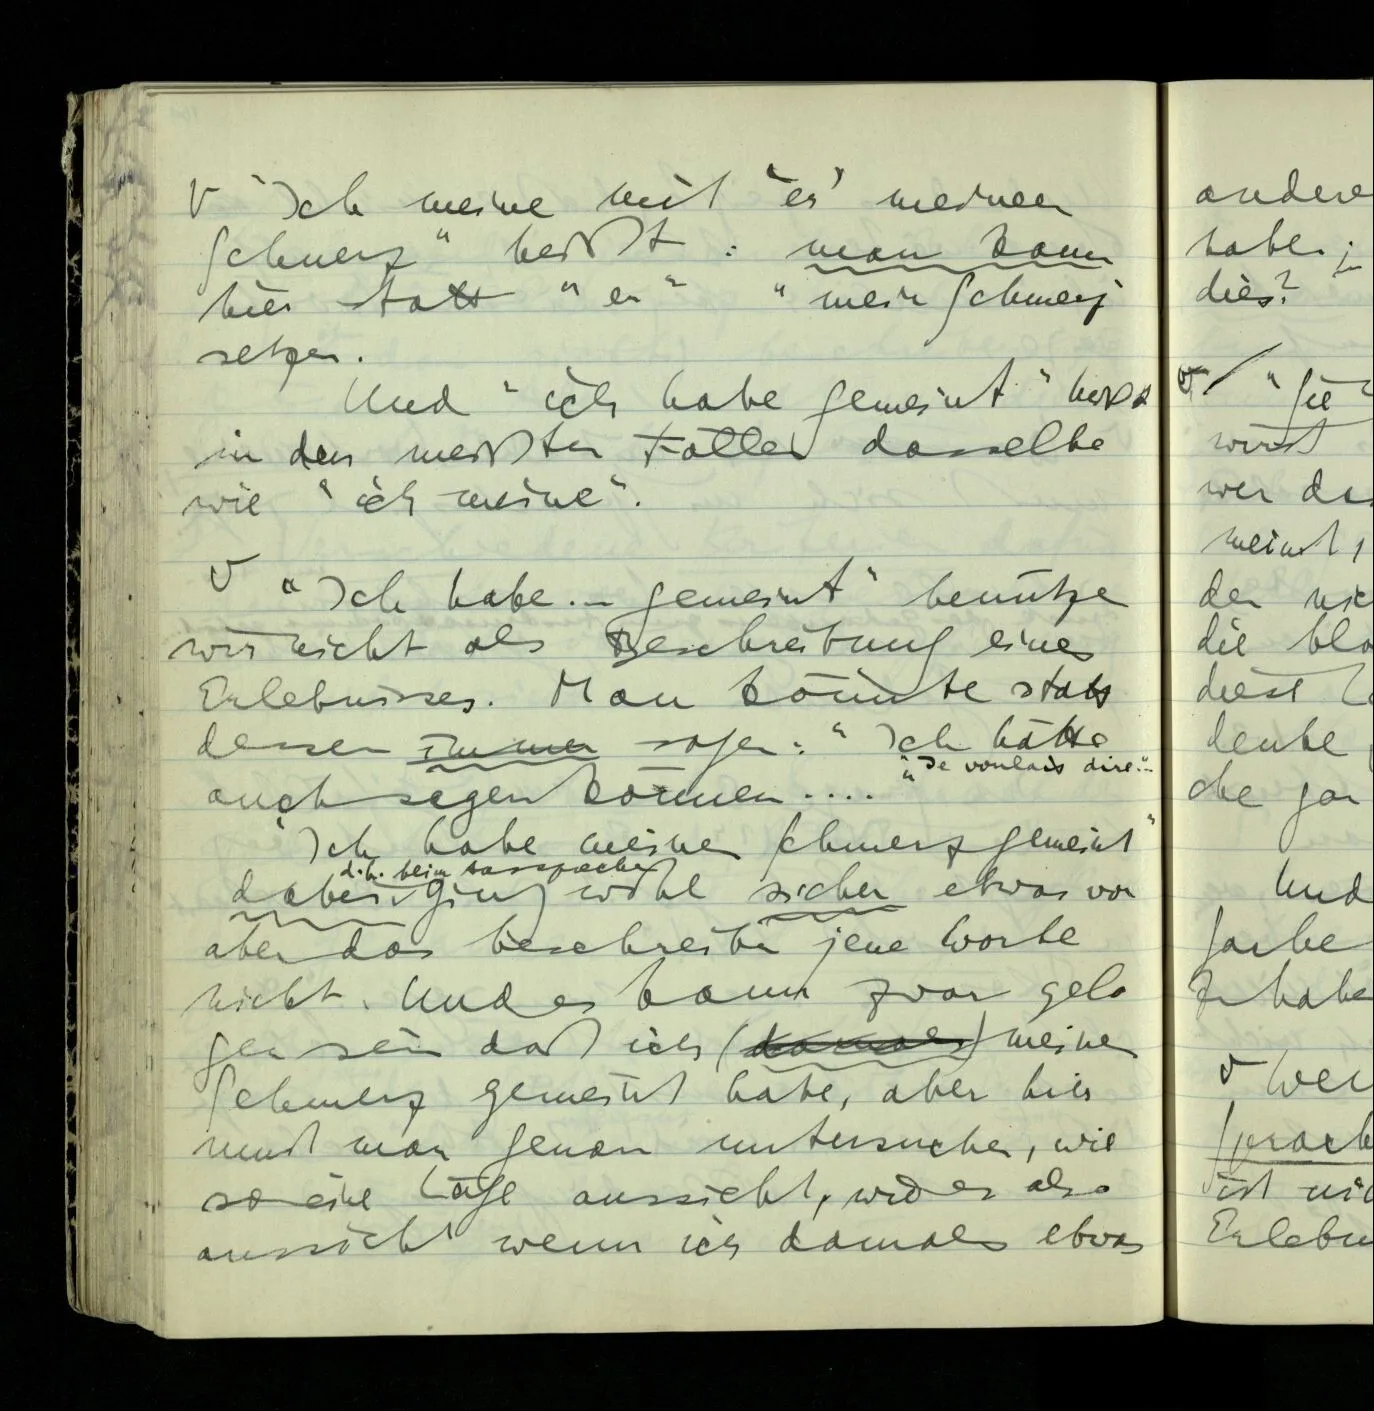 V "Ich meine mit 'er' meinen
Schmerz" heißt: man kann
hier statt "er" "mein Schmerz
setzen.
Und "ich habe gemeint" heißt
in den meisten Fällen dasselbe
wie "ich meine".
V "Ich habe .– gemeint" benütze
wir nicht als Beschreibung eines
Erlebnisses. Man könnte statt
dessen immer sagen: "Ich hätte
auch sagen können .... "Je voulais dire.–
"Ich habe meinen Schmerz gemeint"
d.h. beim Aussprechen
dabei ging wohl sicher etwas vor
aber das beschreiben jene Worte
nicht. Und es kann zwar gela
gen sein daß ich (damals) meinen
Schmerz gemeint habe, aber hier
muß man genau untersuchen, wie
so eine Lüge aussieht, wie es also
aussieht wenn ich damals etwas
andere
habe;
dies?
V / "Sie
wirst
wer das
meinst,
der nic
die bla
diese
denke
che gar
Und
Farbe
zu habe
V Wei
Sprach
ist nic
Erlebn